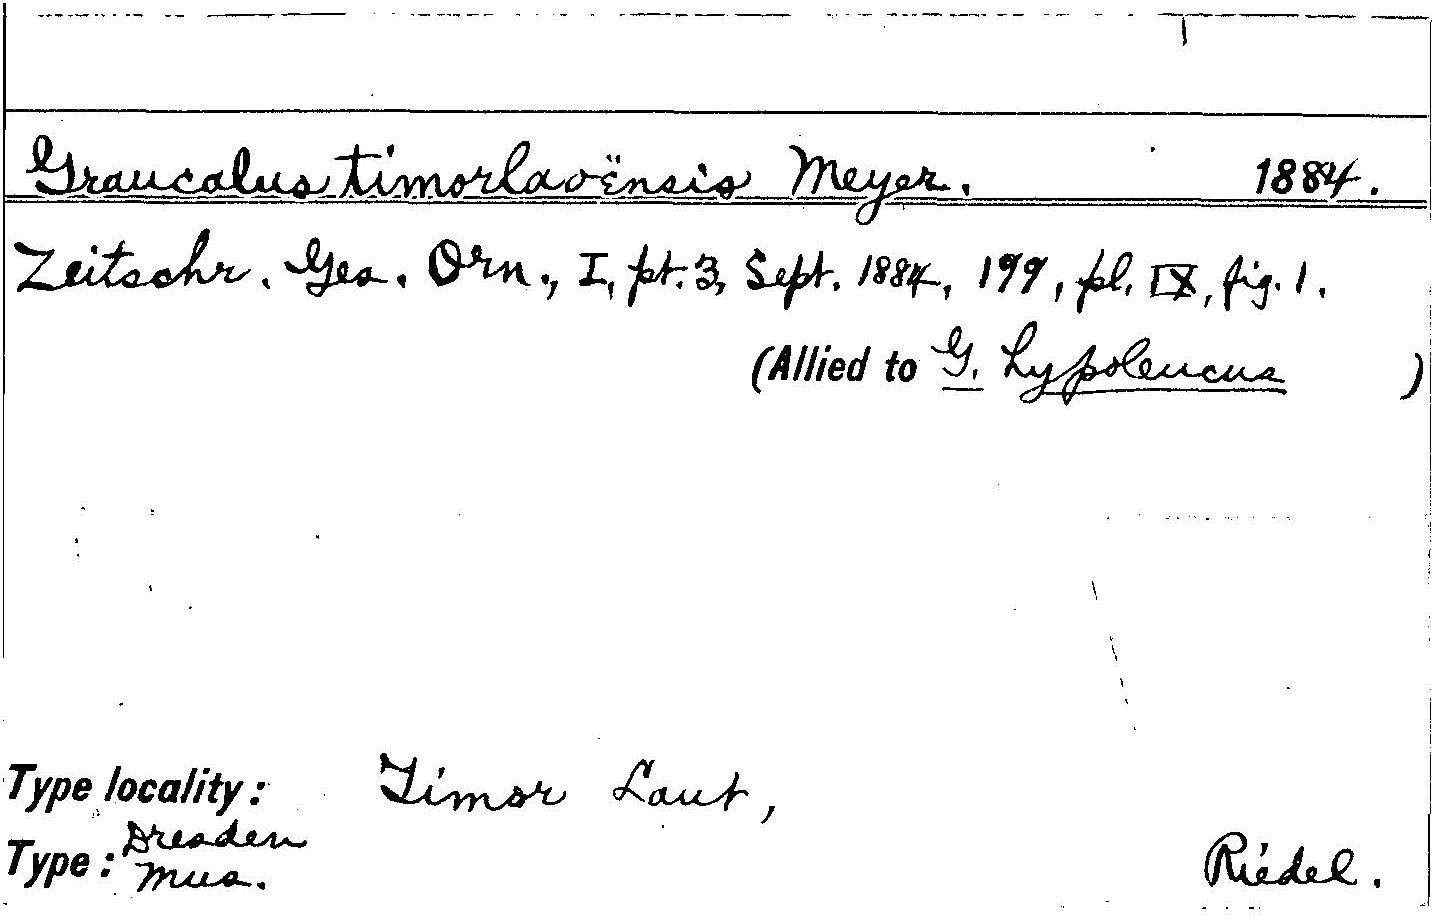 Graucalus timorlaoënsis Meyer. 1884.
Zeitschr. Ges. Orn., I, pt. 3, Sept. 1884, 199, pl. IX, fig. 1.
(Allied to G. hypoleucus )
Type locality: Timor Laut,
Type: Dresden Mus. Riedel.